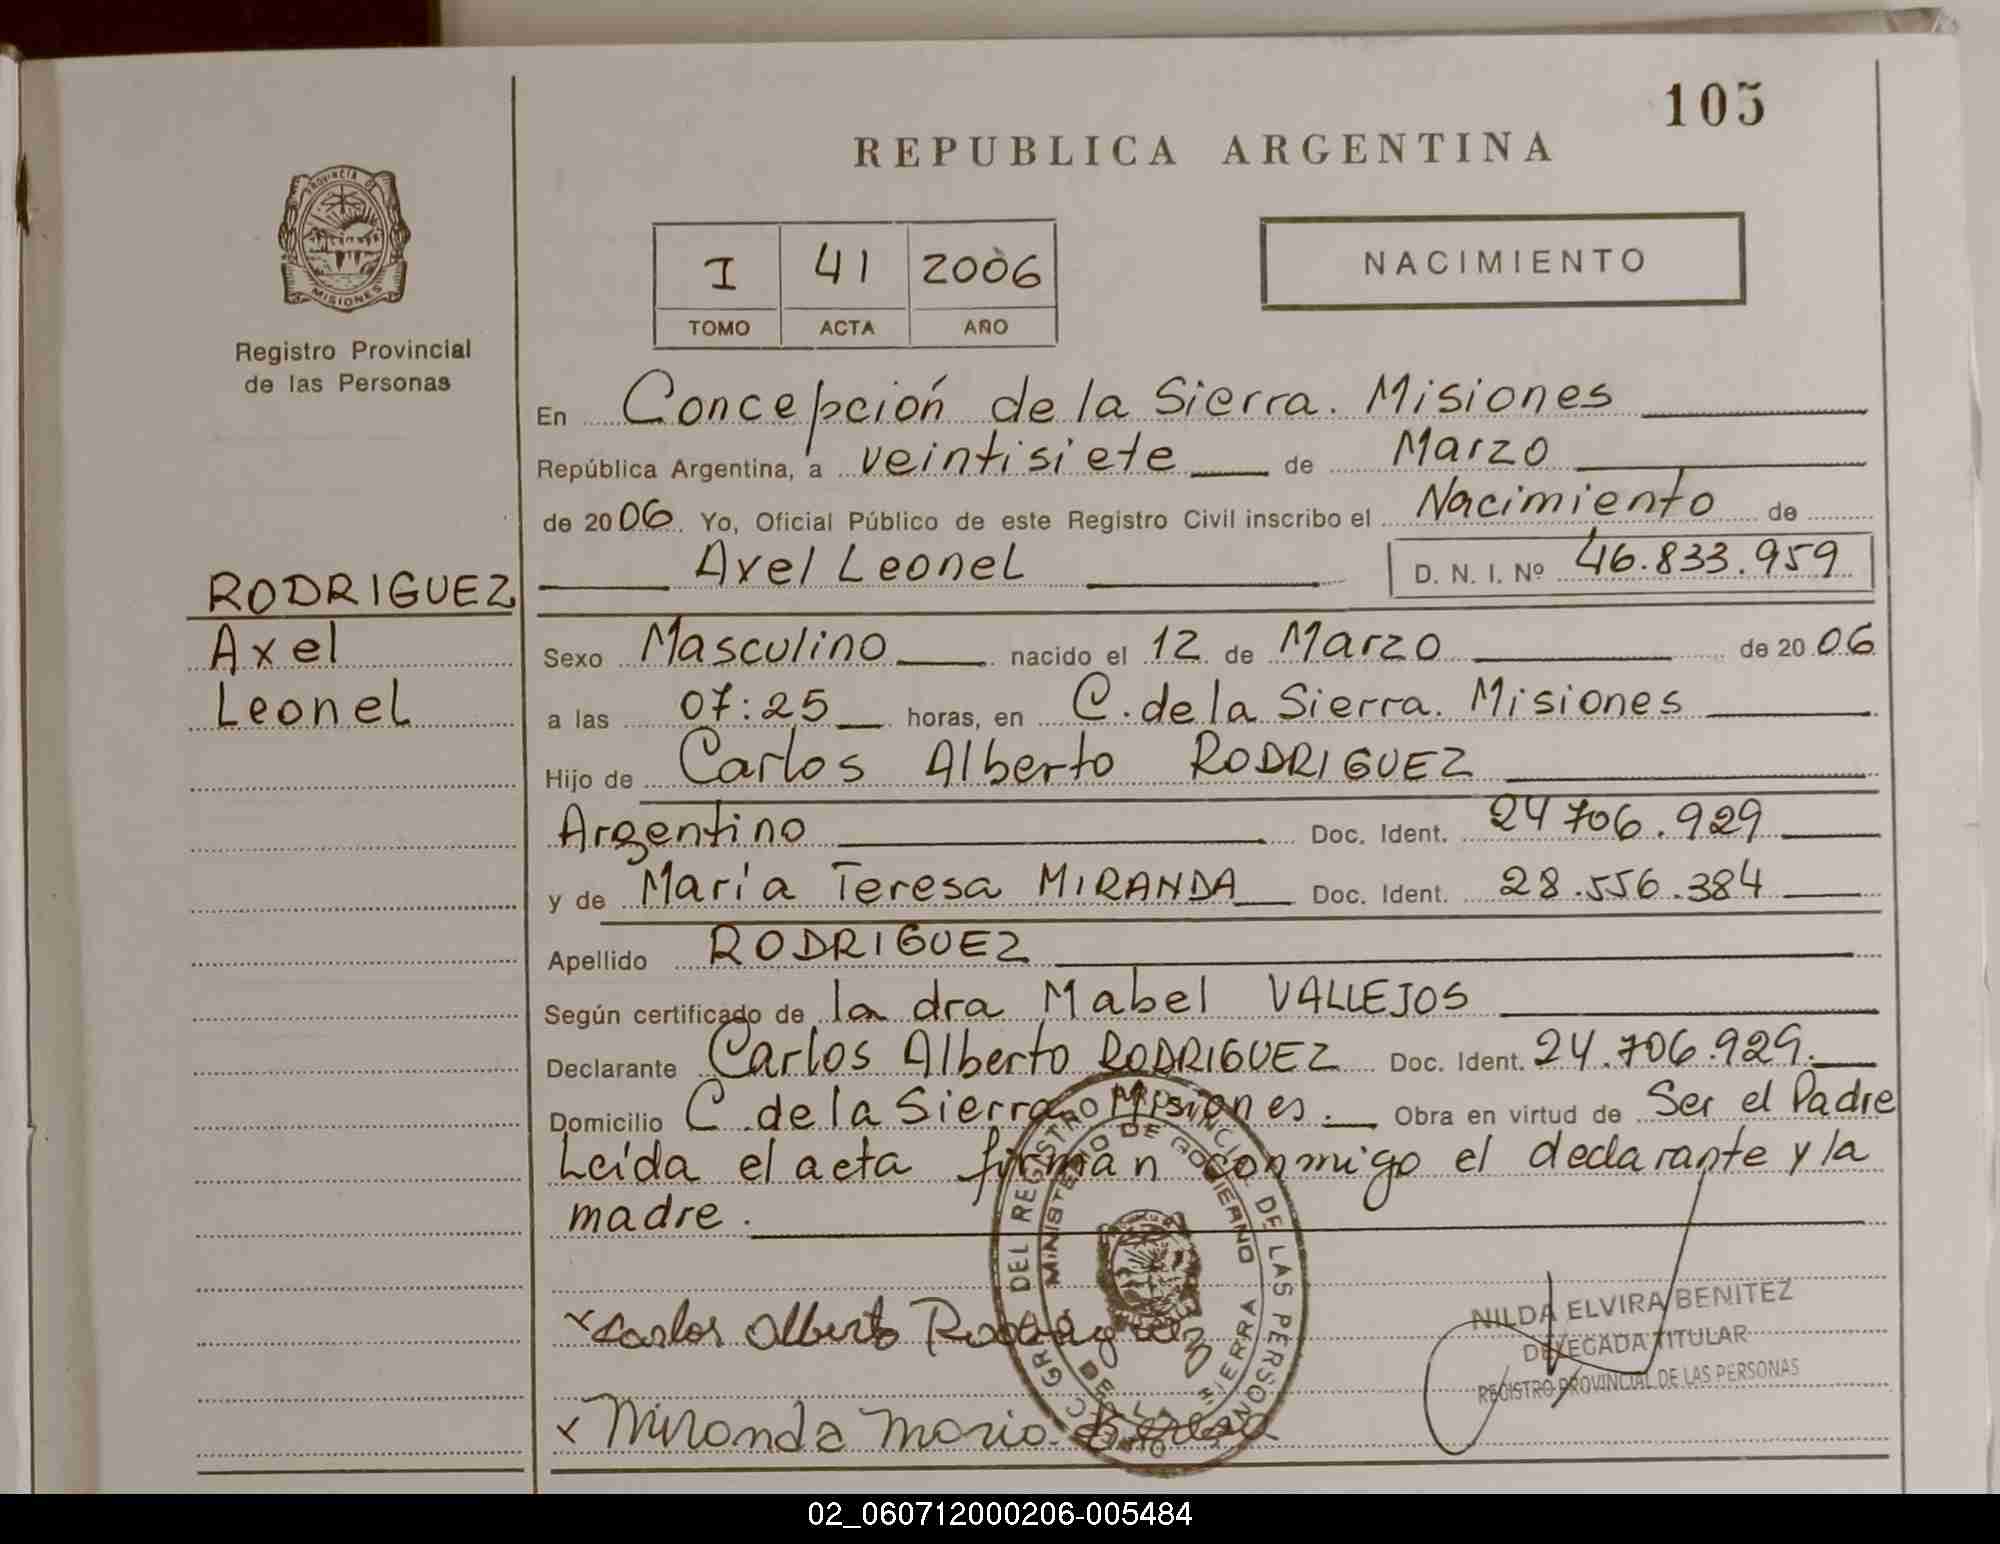 105
REPUBLICA ARGENTINA
PROVINCIA DE
MISIONES
Registro Provincial
de las Personas
I 41 2006
TOMO ACTA AÑO
NACIMIENTO
En Concepción de la Sierra. Misiones
República Argentina, a veintisiete de Marzo
de 2006 Yo, Oficial Público de este Registro Civil inscribo el Nacimiento de
Axel Leonel D. N. I. Nº 46.833.959
RODRIGUEZ
Axel
Leonel
Sexo Masculino nacido el 12 de Marzo de 2006
a las 07:25 horas, en C. de la Sierra. Misiones
Hijo de Carlos Alberto RODRIGUEZ
Argentino Doc. Ident. 24 706.929
y de María Teresa MIRANDA Doc. Ident. 28.556.384
Apellido RODRIGUEZ
Según certificado de la dra Mabel VALLEJOS
Declarante Carlos Alberto RODRIGUEZ Doc. Ident. 24.706.929.
Domicilio C. de la Sierra Misiones. Obra en virtud de Ser el Padre
Leída el acta firman conmigo el declarante y la
madre.
DEL REGISTRO PROVINCIAL DE LAS PERSONAS
MINISTERIO DE GOBIERNO
SIERRA
x Carlos Alberto Rodriguez
x Miranda Maria Teresa
NILDA ELVIRA BENITEZ
DELEGADA TITULAR
REGISTRO PROVINCIAL DE LAS PERSONAS
02_060712000206-005484